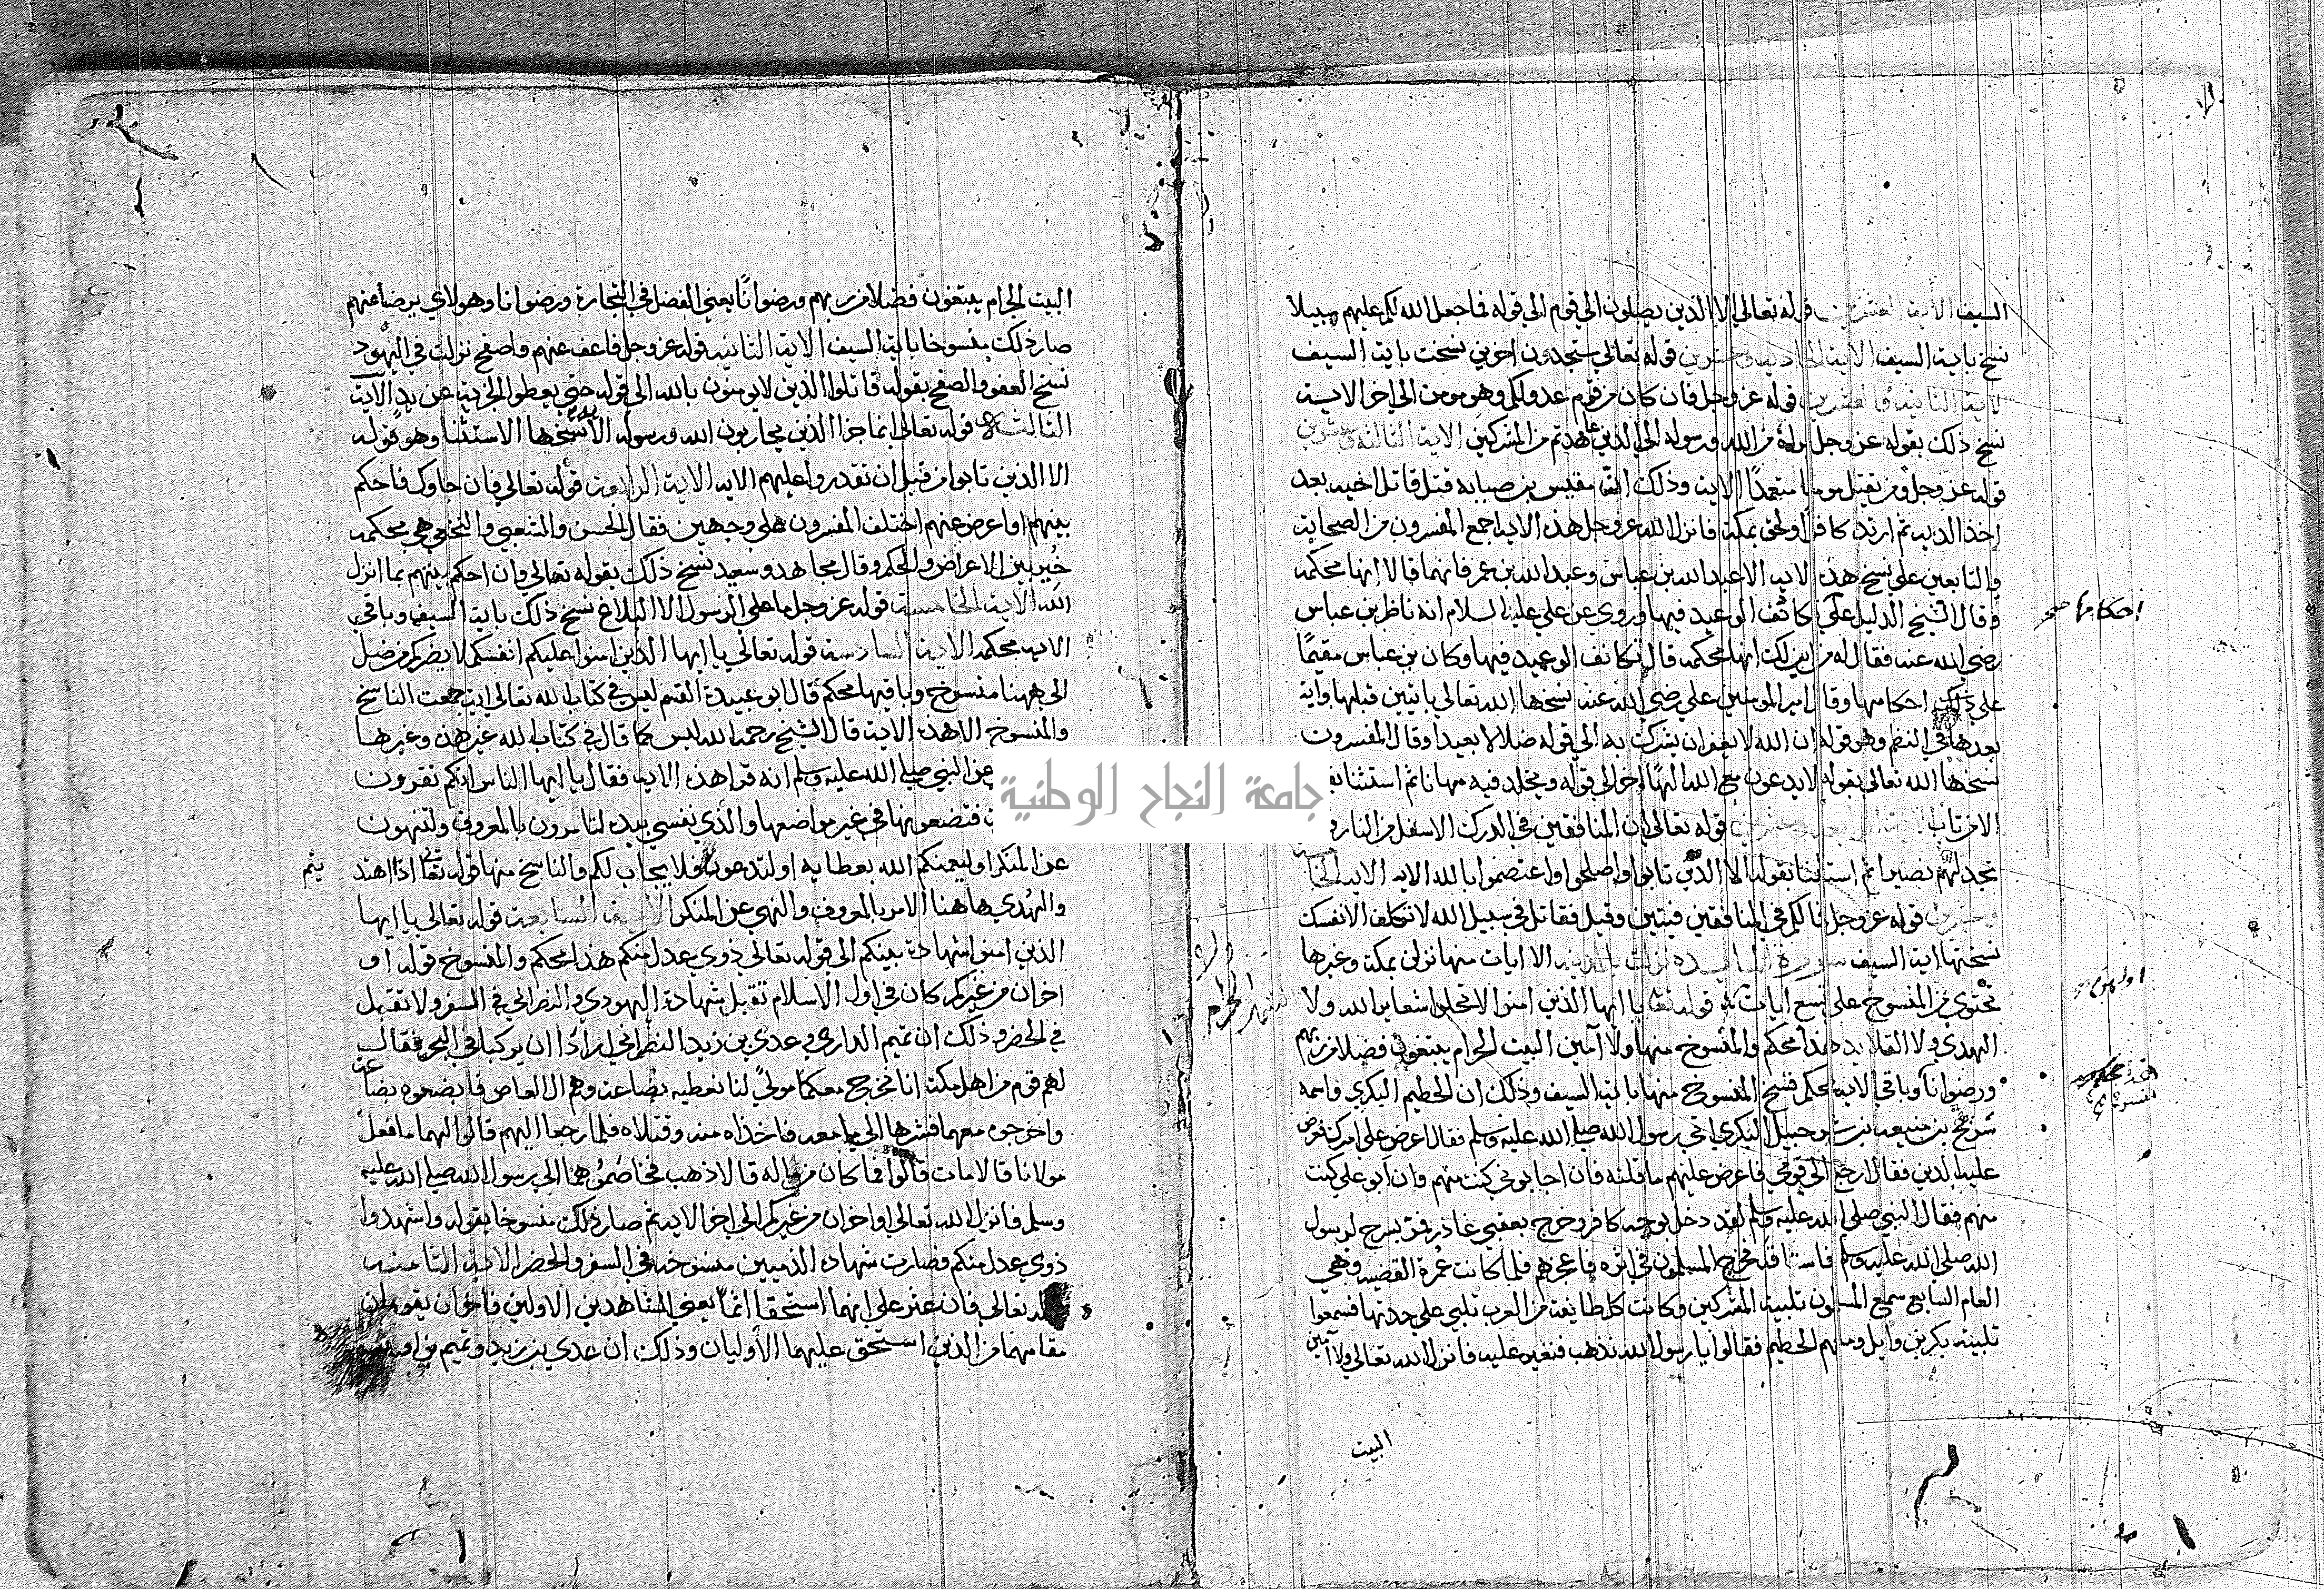 السيف الاية العشرين قوله تعالى الا الذين يصلون الى قوم الى قوله فما جعل الله لكم عليهم سبيلا
نسخ باية السيف الاية الحادية وعشرين قوله تعالى ستجدون اخرين نسخت باية السيف
الاية الثانية والعشرين قوله عز وجل فان كان من قوم عدو لكم وهو مومن الى اخر الاية
نسخ ذلك بقوله عز وجل براة من الله ورسوله الى الذين عاهدتم من المشركين الاية الثالثة وعشرين
قوله عز وجل ومن يقتل مومنا متعمدا الاية وذلك ان مقيس بن صبابه قتل قاتل اخيه بعد
اخذ الدية ثم ارتد كافرا ولحق بمكة فانزل الله عز وجل هذه الاية اجمع المفسرون من الصحابة
والتابعين على نسخ هذه الاية الا عبد الله بن عباس وعبد الله بن عمر فانهما قالا انها محكمة
وقال الشيخ الدليل على تكاثف الوعيد فيها وروي عن علي عليه السلام انه ناظر بن عباس
رضي الله عنه فقال له من اين لك انها محكمة قال تكاثف الوعيد فيها وكان بن عباس مقيما
على ذلك احكامها وقال امير المومنين علي رضي الله عنه نسخها الله تعالى بايتين قبلها واية
بعدها في النظم وهو قوله ان الله لا يغفر ان يشرك به الى قوله ضلالا بعيدا وقال المفسرون
نسخها الله تعالى بقوله لا يدعون مع الله الها اخر الى قوله ويخلد فيه مهانا ثم استثنا
الا من تاب قوله تعالى ان المنافقين في الدرك الاسفل من النار
تجد لهم نصيرا ثم استثنا بقوله الا الذين تابوا واصلحوا واعتصموا بالله الاية الاية
وعشرون قوله عز وجل فما لكم في المنافقين فيتين وقيل فقاتل في سبيل الله لا تكلف الا نفسك
نسختها اية السيف سورة المايدة نزلت بالمدينة الا ايات منها نزلن بمكة وغيرها
تحتوي من المنسوخ على تسع ايات قوله تعا يا ايها الذين امنوا لا تحلوا شعاير الله ولا
الهدي ولا القلايد هذا محكم والمنسوخ منها ولا آمين البيت الحرام يبتغون فضلا من ربهم
ورضوانا وباقي الاية محكم فنسخ المنسوخ منها باية السيف وذلك ان الحطيم البكري واسمه
شريح بن ضبيعة بن شرحبيل البكري اتى رسول الله صلى الله عليه وسلم فقال اعرض علي امرك فعرض
عليه الدين فقال ارجع الى قومي فاعرض عليهم ما قلته فان اجابوني كنت منهم وان ابو علي كنت
منهم فقال النبي صلى الله عليه وسلم لقد دخل بوجه كافر وخرج بعقبي غادر فمر بسرح لرسول
الله صلى الله عليه وسلم فاستاقه فخرج المسلمون في اثره فاعجزهم فلما كانت عمرة القضية وهي
العام السابع سمع المسلمون تلبية المشركين وكانت كل طايفة من العرب تلبي على حدتها فسمعوا
تلبية بكر بن وايل ومنهم الحطيم فقالوا يا رسول الله نذهب فنغير عليه فانزل الله تعالى ولا آمين
البيت
احكامها صح
البيت الحرام يبتغون فضلا من ربهم ورضوانا يعني الفضل في التجارة ورضوانا وهو لاي يرضا عنهم
صار ذلك منسوخا باية السيف الاية الثانية قوله عز وجل فاعف عنهم واصفح نزلت في اليهود
نسخ العفو والصفح بقوله قاتلوا الذين لا يومنون بالله الى قوله حتى يعطوا الجزية عن يد الآية
الثالثة قوله تعالى انما جزا الذين يحاربون الله ورسوله الاية نسخها الاستثنا وهو قوله
الا الذين تابوا من قبل ان تقدروا عليهم الاية الاية الرابعة قوله تعالى فان جاوك فاحكم
بينهم او اعرض عنهم اختلف المفسرون على وجهين فقال الحسن والشعبي والنخعي هي محكمة
خير بين الاعراض والحكم وقال مجاهد وسعيد نسخ ذلك بقوله تعالى وان احكم بينهم بما انزل
الله الاية الخامسة قوله عز وجل ما على الرسول الا البلاغ نسخ ذلك باية السيف وباقي
الاية محكمة الاية السادسة قوله تعالى يا ايها الذين امنوا عليكم انفسكم لا يضركم من ضل
الى ههنا منسوخ وباقيها محكم قال ابو عبيدة القسم ليس في كتاب الله تعالى اية جمعت الناسخ
والمنسوخ الا هذه الاية قال الشيخ رحمه الله ليس كما قال في كتاب الله غير هذه وغيرها
عن النبي صلى الله عليه وسلم انه قرا هذه الاية فقال يا ايها الناس انكم تقرون
فتضعونها في غير مواضعها والذي نفسي بيده لتامرون بالمعروف ولتنهون
عن المنكر او ليعمنكم الله بعطابه او لتدعون فلا يجاب لكم والناسخ منها قوله تعالى اذا اهتد يتم
والهدي هاهنا الامر بالمعروف والنهي عن المنكر الاية السابعة قوله تعالى يا ايها
الذين امنوا شهادة بينكم الى قوله تعالى ذوي عدل منكم هذا محكم والمنسوخ قوله او
اخران من غيركم كان في اول الاسلام تقبل شهادة اليهودي والنصراني في السفر ولا تقبل
في الحضر وذلك ان تميم الداري وعدي بن زيد النصراني ارادا ان يركبا في البحر فقال
لهم قوم من اهل مكة انا نخرج معكما مولى لنا نعطيه بضاعة وهم ال العاص فابضعوه بضاعة
واخرجوه معهما فشرها الى ما معه فاخذاه منه وقتلاه فلما رجعا اليهم قالوا لهما ما فعل
مولانا قالا مات قالوا فما كان من ماله قالا ذهب فخاصموهما الى رسول الله صلى الله عليه
وسلم فانزل الله تعالى او اخران من غيركم الى اخر الاية ثم صار ذلك منسوخا بقوله واشهدوا
ذوي عدل منكم فصارت شهادة الذميين منسوخة في السفر والحضر الاية الثامنة
تعالى فان عثر على انهما استحقا اثما يعني الشاهدين الاولين فاخران يقومان
مقامهما من الذين استحق عليهما الاوليان وذلك ان عدي بن زيد وتميم بن اوس
جامعة النجاح الوطنية